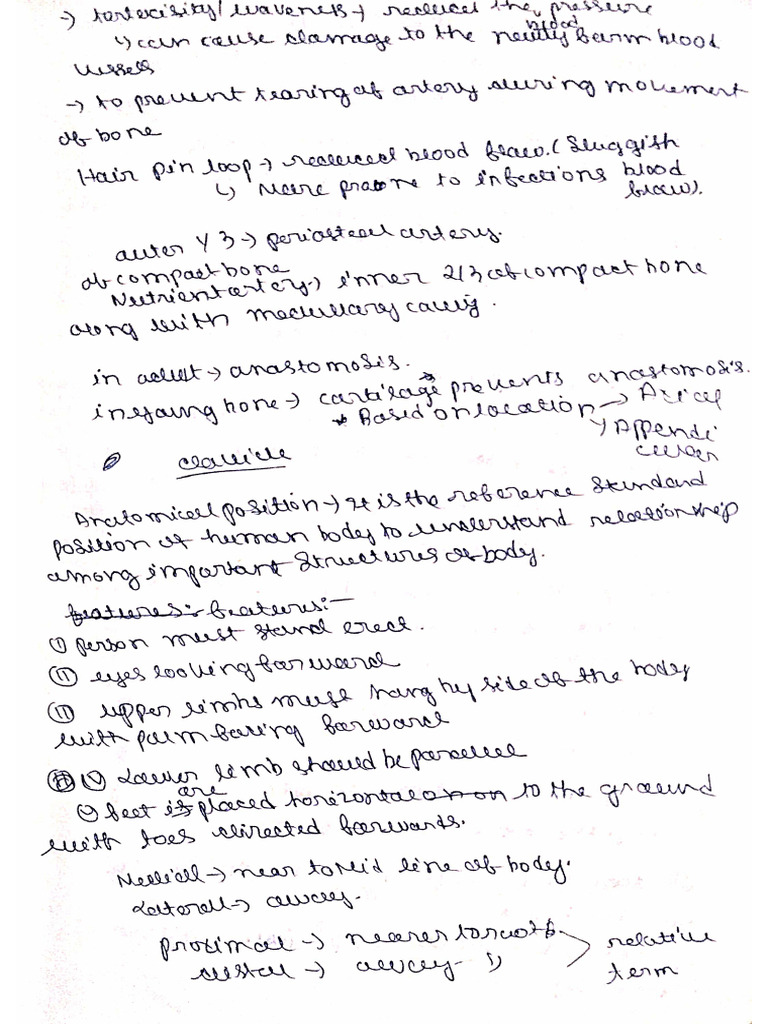 → tortocisity/waveness → reduced the pressure
↳ can cause damage to the newly blood barm blood
vessels
→ to prevent tearing of artery during movement
of bone
Hair pin loop → reduced blood flow. (Sluggish
↳ More prone to infections blood
flow).
outer 1/3 → periosteal artery.
of compact bone
Nutrient artery → inner 2/3 of compact bone
along with medullary cavity.
in adult → anastomosis.
in young bone → cartilage prevents anastomosis.
* Based on location → Axical
↳ Appendi
cular
clavicle
Anatomical position → It is the reference standard
position of human body to understand relationship
among important structures of body.
features: features:-
(i) person must stand erect.
(ii) eyes looking forward
(iii) upper limbs must hang by side of the body
with palm facing forward
(iv) Lower limb should be parallel
(v) feet is are placed horizontal on to the ground
with toes directed forwards.
Medial → near to Mid line of body.
Lateral → away.
proximal → nearer to root
distal → away "
relative
term